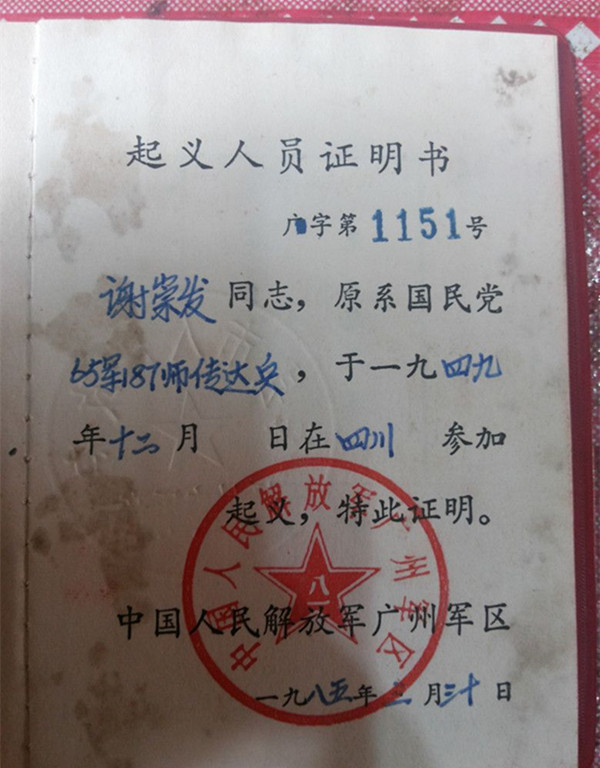 起义人员证明书
广字第1151号
谢崇发同志，原系国民党
65军187师传达兵，于一九四九
年十二月 日在四川 参加
起义，特此证明。
中国人民解放军广州军区
八一
中国人民解放军广州军区
一九八五年 月三十日